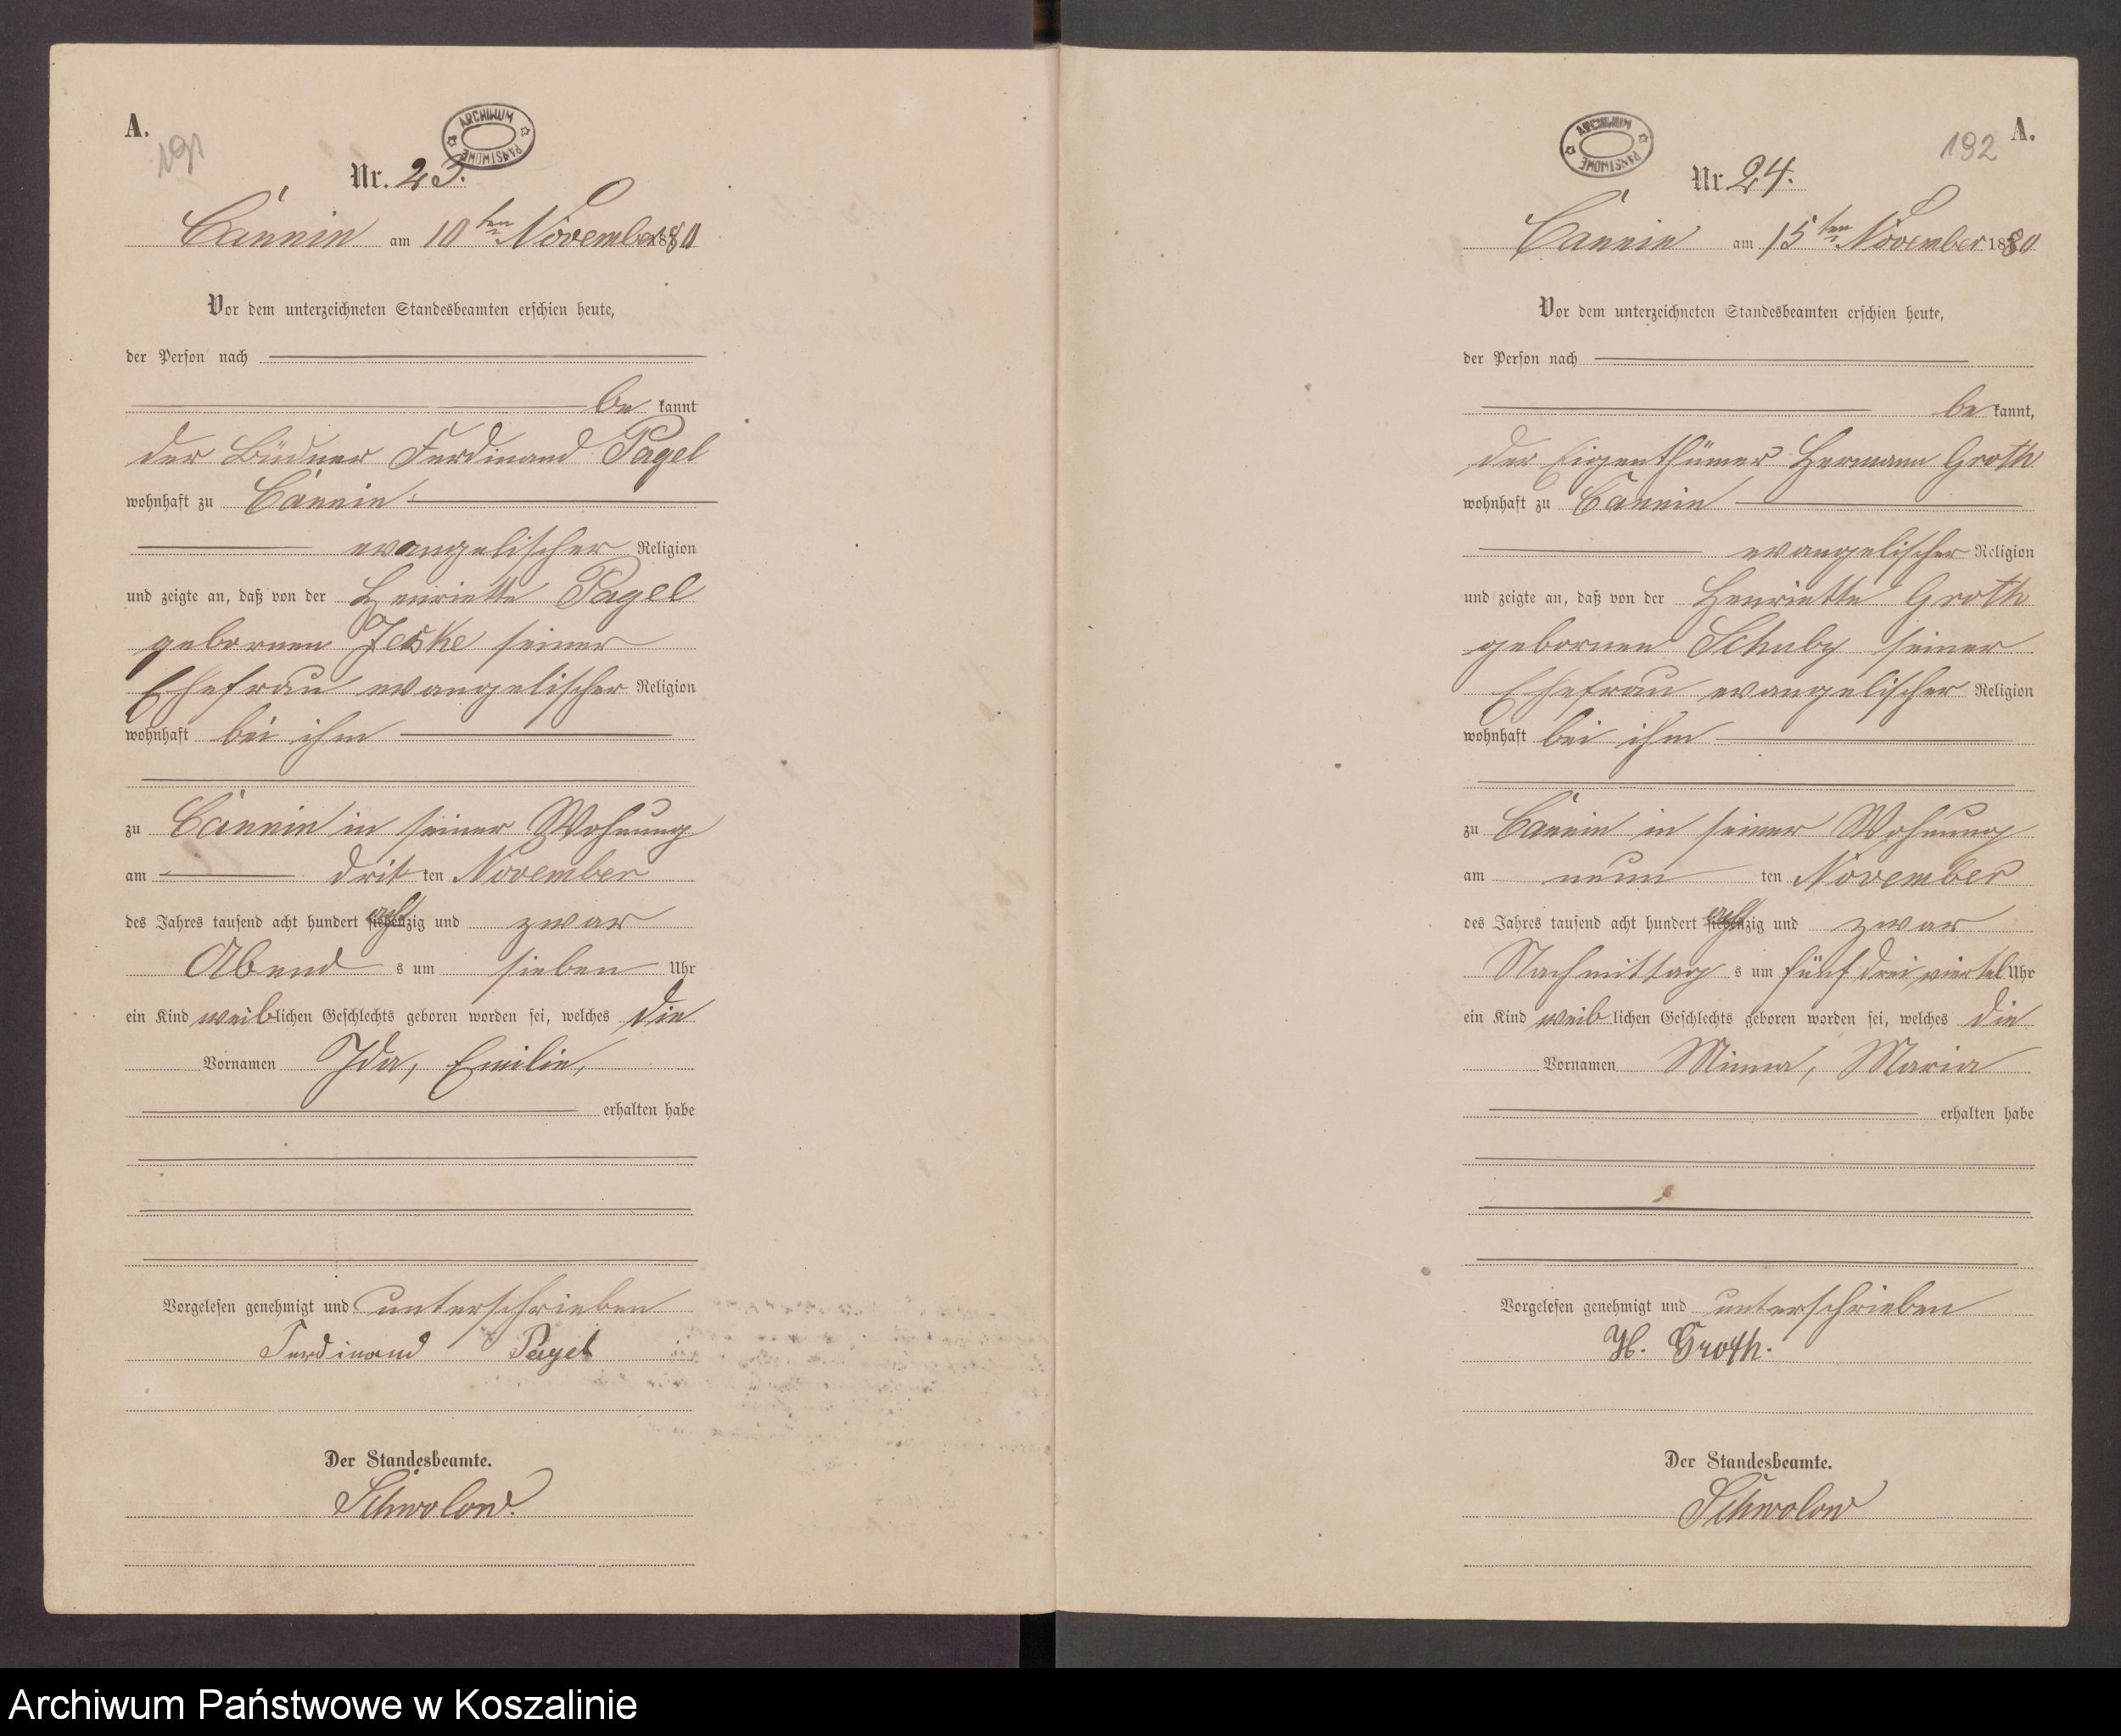 A.
191
ARCHIWUM PAŃSTWOWE
Nr. 23.
Cannin am 10ten November 1880
Vor dem unterzeichneten Standesbeamten erschien heute,
der Person nach
be kannt
der Büdner Ferdinand Pagel
wohnhaft zu Cannin
evangelischer Religion
und zeigte an, daß von der Henriette Pagel
gebornen Jeske seiner
Ehefrau evangelischer Religion
wohnhaft bei ihm
zu Cannin in seiner Wohnung
am drit ten November
des Jahres tausend acht hundert siebenzig acht und zwar
Abend s um sieben Uhr
ein Kind weiblichen Geschlechts geboren worden sei, welches die
Vornamen Ida, Emilie,
erhalten habe
Vorgelesen genehmigt und unterschrieben
Ferdinand Pagel
Der Standesbeamte.
Schwolow.
192 A.
ARCHIWUM PAŃSTWOWE
Nr 24.
Cannin am 15ten November 1880
Vor dem unterzeichneten Standesbeamten erschien heute,
der Person nach
be kannt,
der Eigenthümer Hermann Groth
wohnhaft zu Cannin
evangelischer Religion
und zeigte an, daß von der Henriette Groth
gebornen Schuby seiner
Ehefrau evangelischer Religion
wohnhaft bei ihm
zu Cannin in seiner Wohnung
am neun ten November
des Jahres tausend acht hundert siebenzig acht und zwar
Nachmittag s um fünf drei viertel Uhr
ein Kind weib lichen Geschlechts geboren worden sei, welches die
Vornamen Minna, Maria
erhalten habe
Vorgelesen genehmigt und unterschrieben
H. Groth.
Der Standesbeamte.
Schwolow
Archiwum Państwowe w Koszalinie